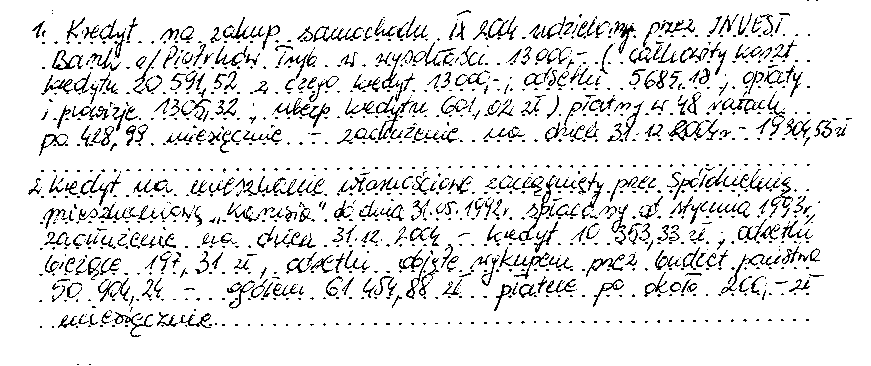 1. Kredyt na zakup samochodu IX 2004 udzielony przez INVEST
Bank o/Piotrków Tryb w wysokości 13 000,- (całkowity koszt
kredytu 20 591,52 z czego kredyt 13 000,-; odsetki 5685,18, opłaty
i prowizje 1305,32; ubezp kredytu 601,02 zł) płatny w 48 ratach
po 428,99 miesięcznie - zadłużenie na dzień 31.12.2004r - 19304,55 zł
2. Kredyt na mieszkanie własnościowe zaciągnięty przez Spółdzielnię
mieszkaniową „ " do dnia 31.05.1992r. spłacany od stycznia 1993r;
zadłużenie na dzień 31.12.2004 - kredyt 10 353,33 zł; odsetki
bieżące 197,31 zł, odsetki objęte wykupem przez budżet państwa
50 904,24 - ogółem 61 454,88 zł płatne po około 200,- zł
miesięcznie